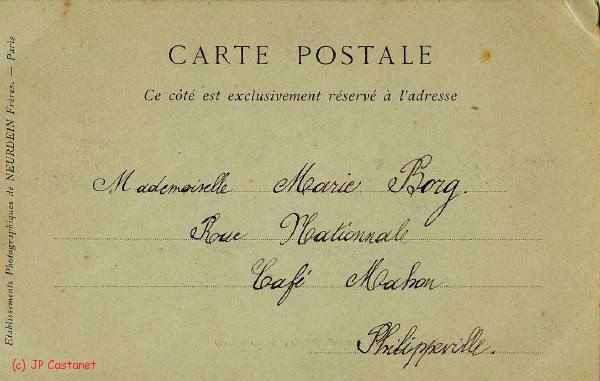 CARTE POSTALE
Ce côté est exclusivement réservé à l'adresse
Mademoiselle Marie Borg.
Rue Nationnale
Café Mahon
Philippeville.
Etablissements Photographiques de NEURDEIN Frères. — Paris
(c) JP Castanet